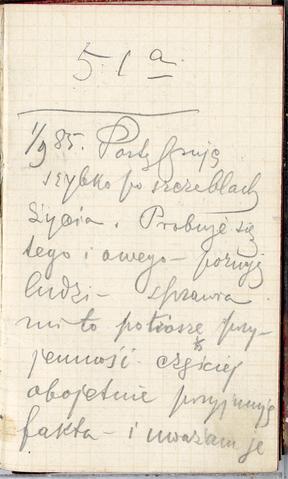 51a
1/9 85. Postępuję
szybko po szczeblach
życia. Probuję się
tego i owego - poznaję
ludzi - sprawia
mi to potrosze przy-
jemność częściej
obojetnie przyjmuję
fakta - i uważam je